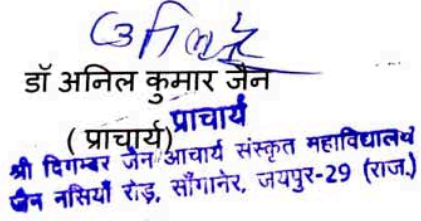 डॉ अनिल कुमार जैन
( प्राचार्य) प्राचार्य
श्री दिगम्बर जैन आचार्य संस्कृत महाविद्यालय
जैन नसियाँ रोड़, साँगानेर, जयपुर-29 (राज.)